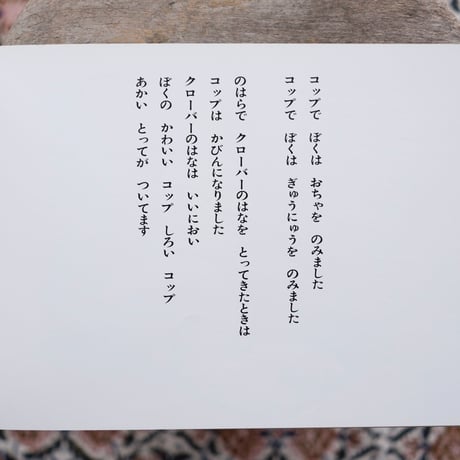 コップで ぼくは おちゃを のみました
コップで ぼくは ぎゅうにゅうを のみました
のはらで クローバーのはなを とってきたときは
コップは かびんになりました
クローバーのはなは いいにおい
ぼくの かわいい コップ しろい コップ
あかい とってが ついてます